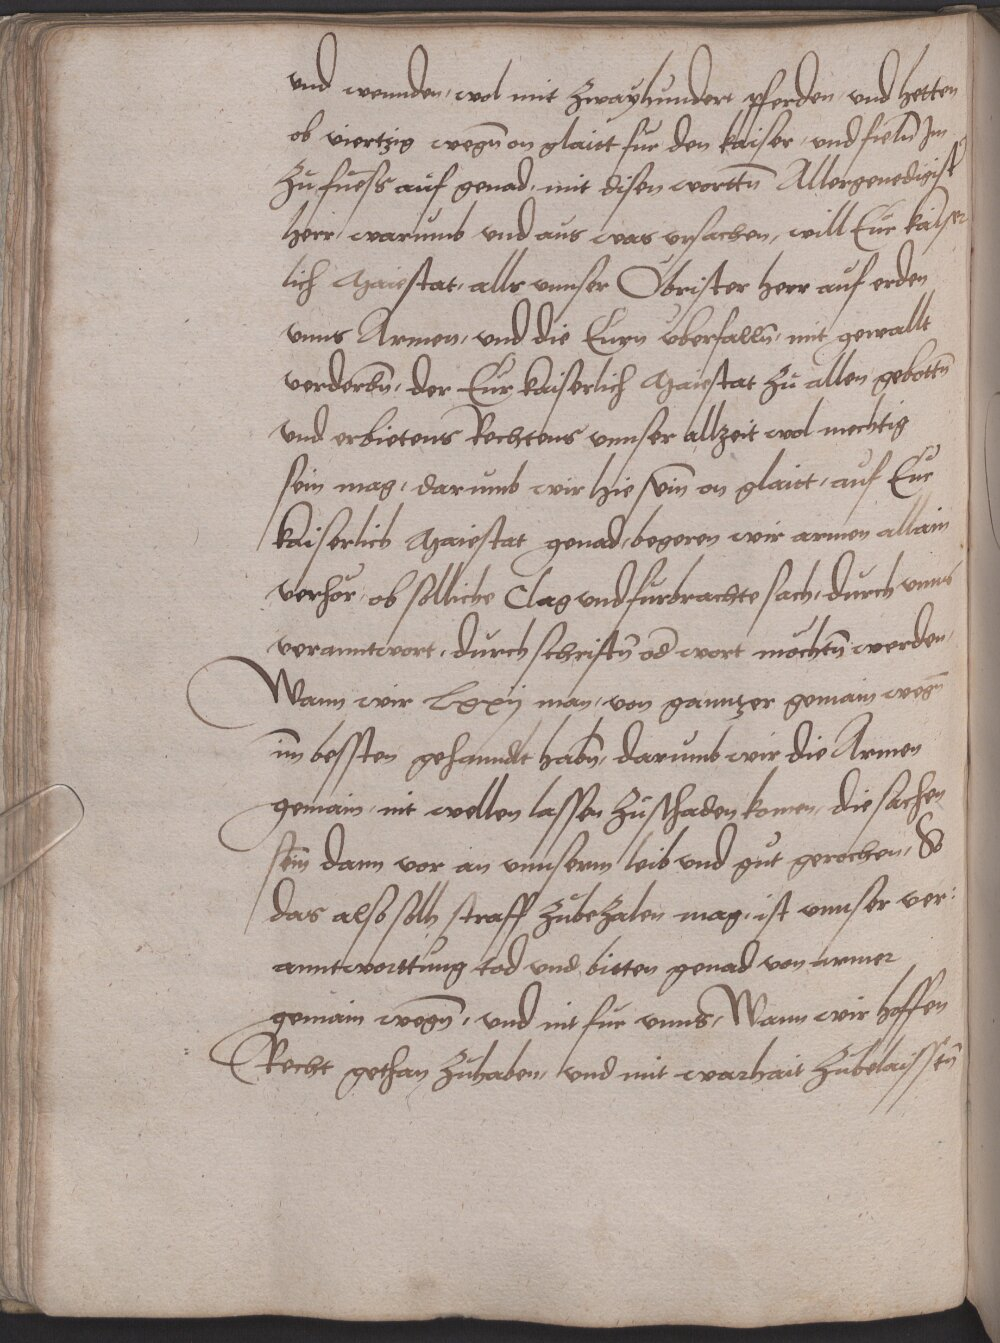 vnd wennden, wol mit zwayhundert pferden, vnd hetten
ob viertzig wegn̄ on glaitt fur den kaiser, vnd fieln̄ Im
zu fuess auf genad, mit disen worttn̄ Allergenedigist
herr, warumb vnd aus was vrsachen, will Eur kaiser
lich Maiestat, alls vnnser Obrister herr auf erden
vnns Armen, vnd die Eurn vberfalln̄, mit gewallt
verderbn̄, der Eur kaiserlich Maiestat zu allen gebottn̄
vnd erbietens Rechtens vnnser allzeit wol mechtig
sein mag, darumb wir hie sein̄ on glaitt, auf Eur
kaiserlich Maiestat genad, begeren wir armen allain
verhör, ob solliche Clag vnd furbrachte sach, durch vnns
veranntwort, durch schriftn̄ od̄ wort möchtn̄ werden,
Wann wir lxxij man, von ganntzer gemain wegn̄
im bessten gehanndlt habn̄, darumb wir die Armen
gemain, nit wellen lassen zu schaden komen, die sachen
sein̄ dann vor an vnnserm leib vnd gut gerochen, So
das also solh straff zubezalen mag, ist vnnser ver:
anntworttung tod vnd bitten genad von armer
gemain wegn̄, vnd nit fur vnns, Wann wir hoffen
Recht gethan zuhaben, vnd mit warhait zubelaisstn̄